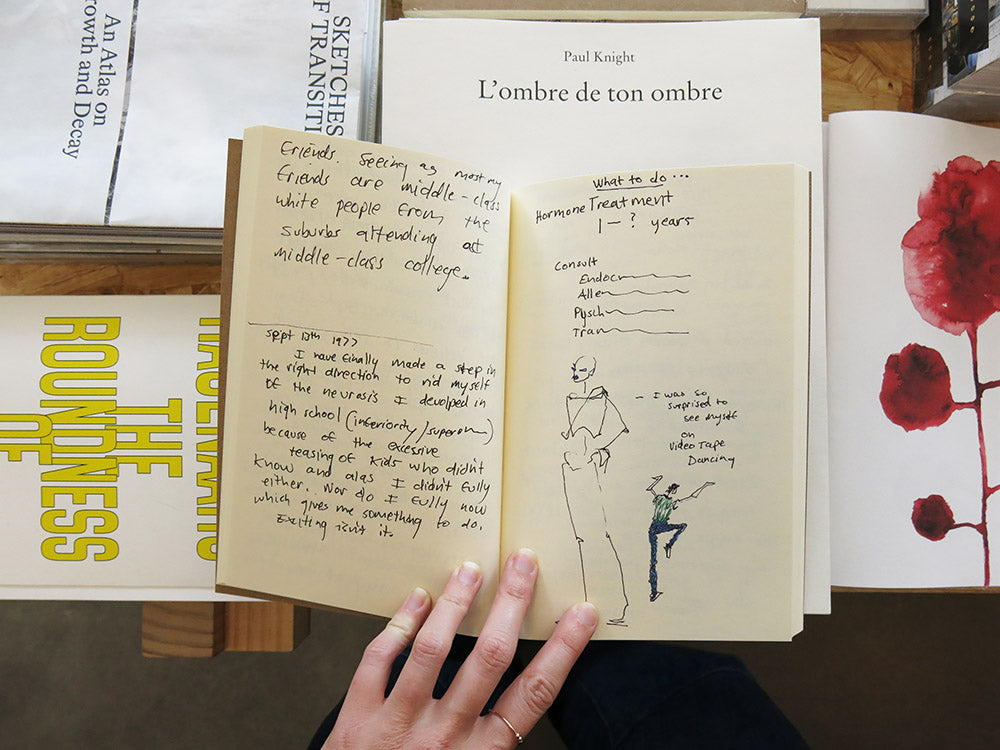 An Atlas on
rowth and Decay
SKETCHES
F TRANSITI
Paul Knight
L'ombre de ton ombre
THE
ROUNDNESS
OF
Friends. Seeing as most my
friends are middle-class
white people from the
suburbs attending
middle-class college.
Sept 13th 1977
I have finally made a step in
the right direction to rid myself
of the neurosis I devolped in
high school (inferiority/superor
because of the excessive
teasing of kids who didn't
know and alas I didn't fully
either. Nor do I fully now
which gives me something to do.
Exciting isn't it.
What to do...
Hormone Treatment
1 - ? years
Consult
Endocr
Aller
Pysch
Tran
- I was so
surprised to
see myself
on
Video Tape
Dancing